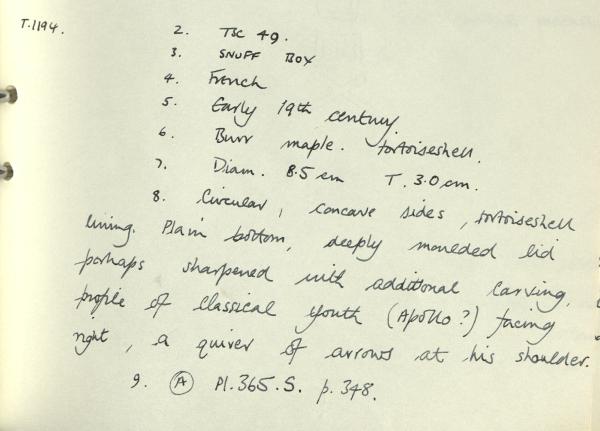 T.1194.
2. TSC 49.
3. SNUFF BOX
4. French
5. Early 19th century.
6. Burr maple. tortoiseshell.
7. Diam. 8.5 cm T. 3.0 cm.
8. Circular, concave sides, tortoiseshell
lining. Plain bottom, deeply moulded lid
perhaps sharpened with additional carving,
profile of Classical youth (Apollo?) facing
right, a quiver of arrows at his shoulder.
9. A Pl. 365. S. p. 348.